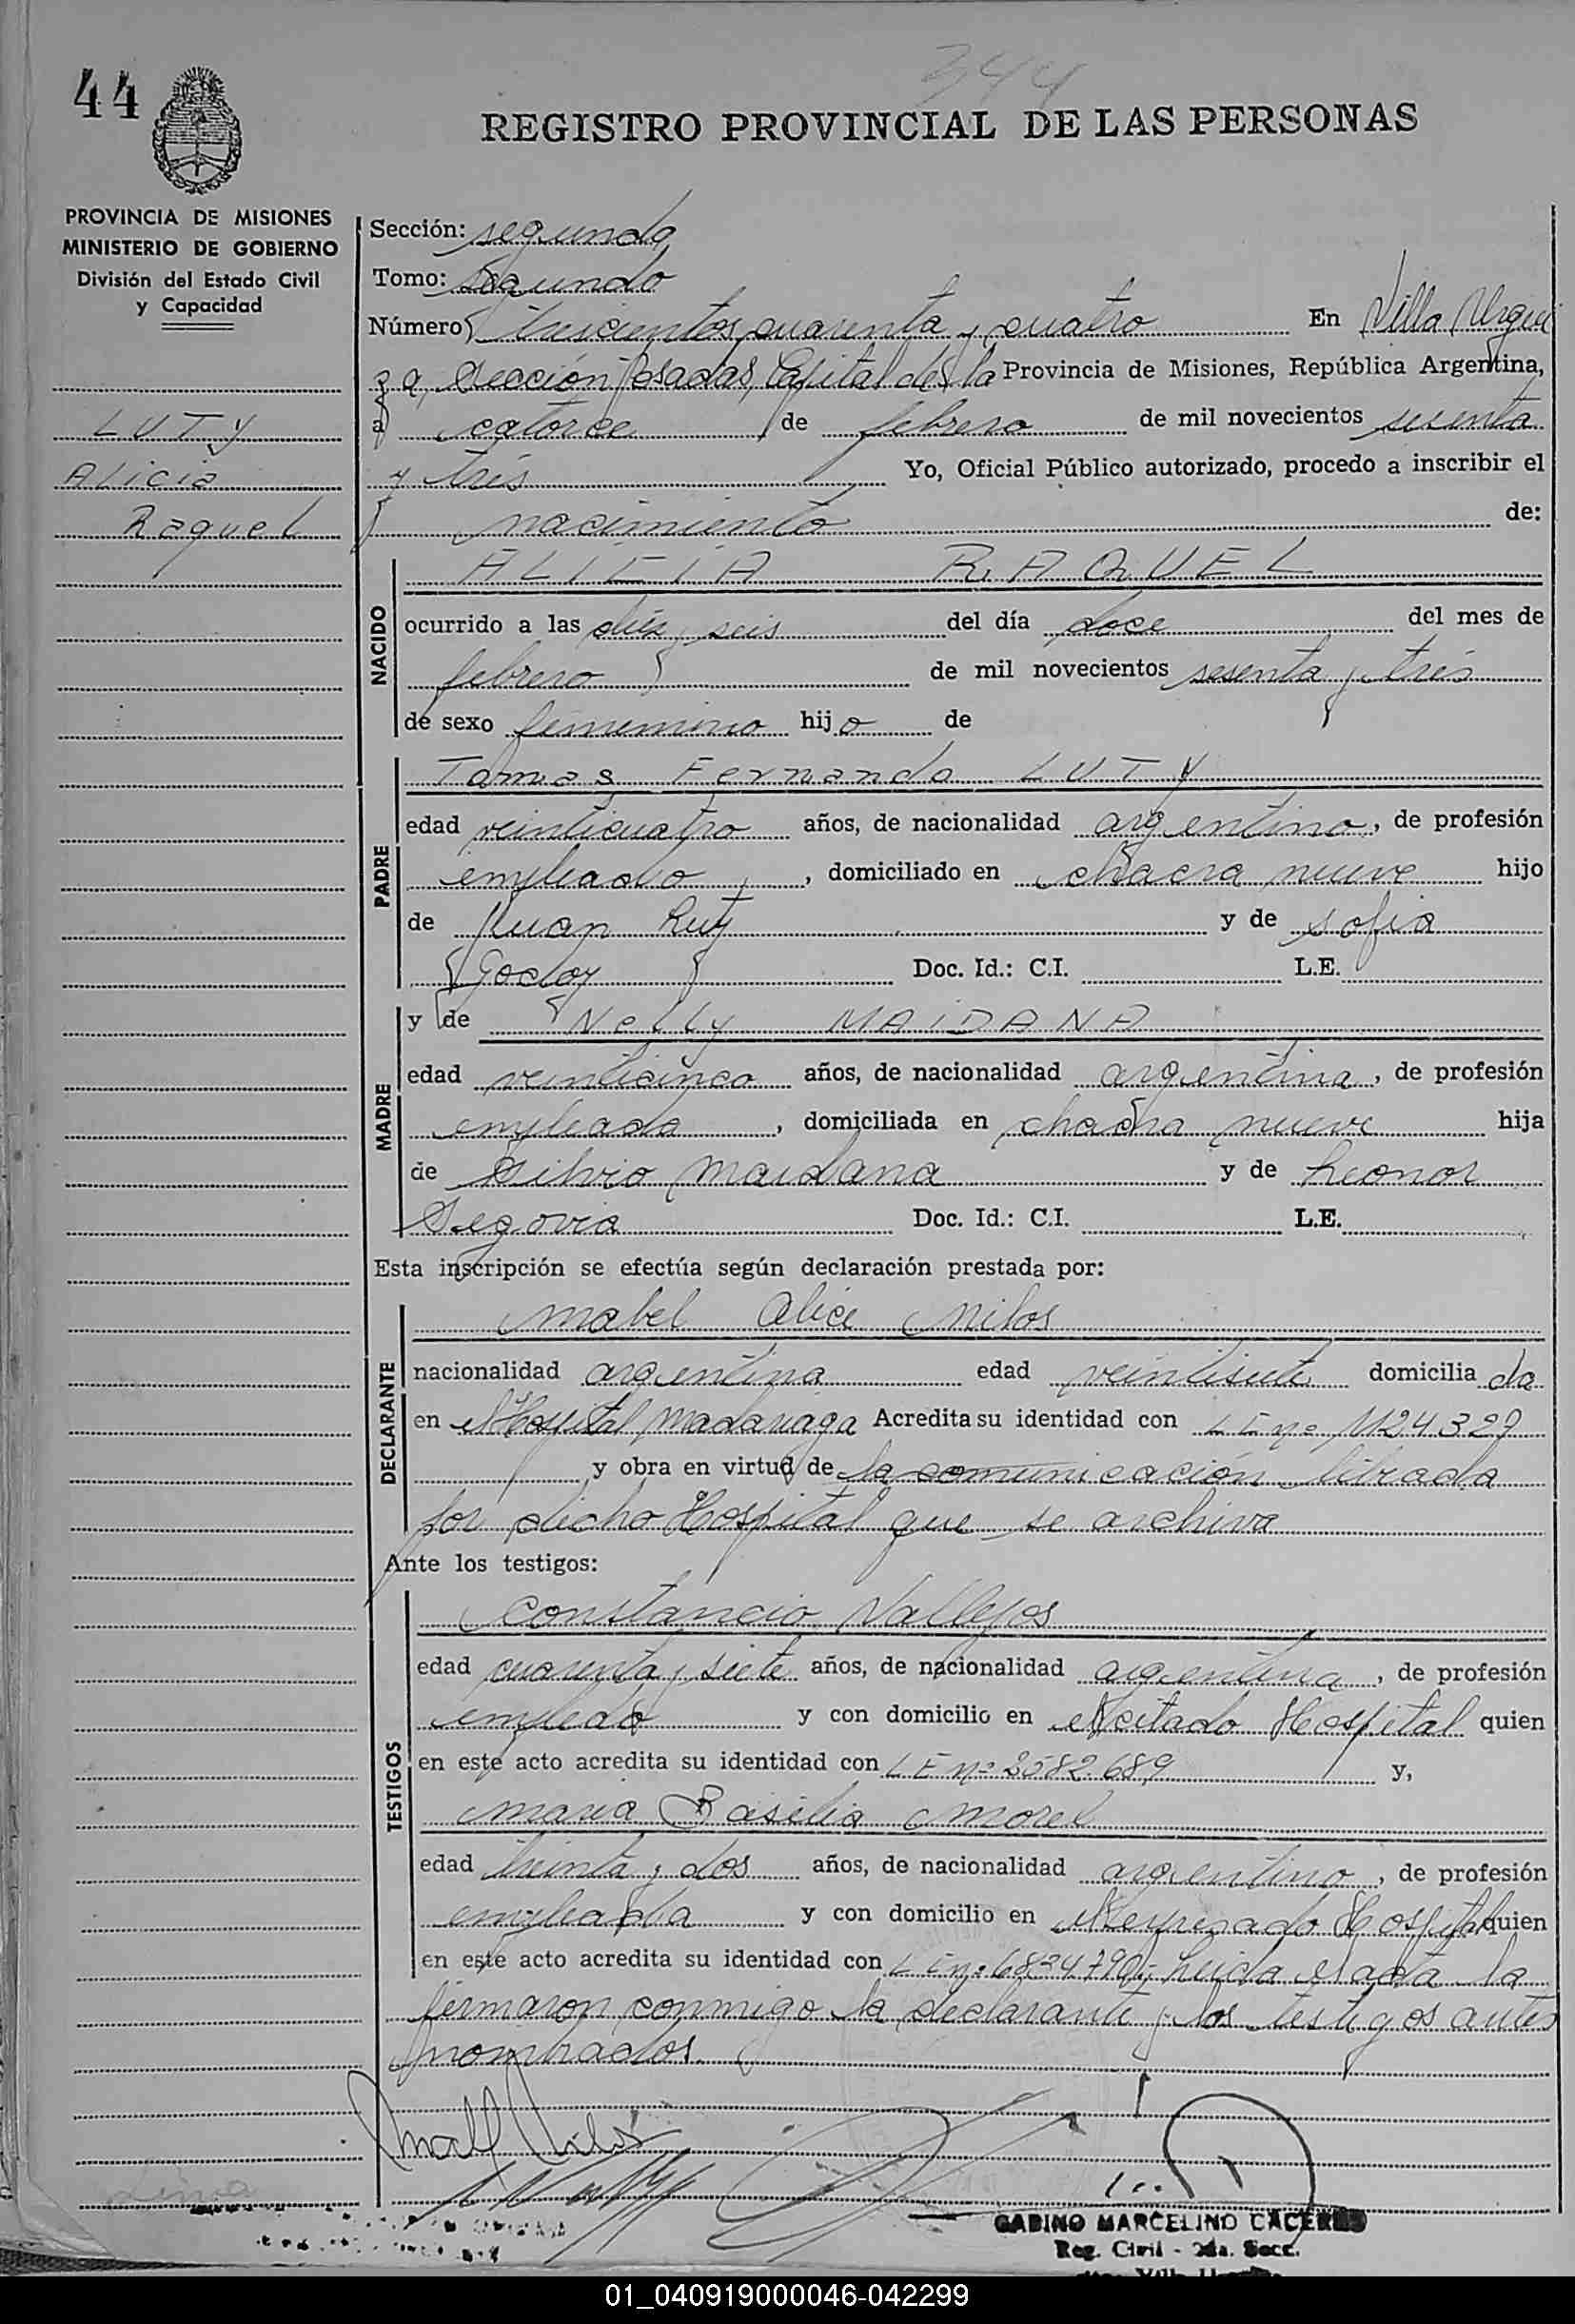 344
44
REGISTRO PROVINCIAL DE LAS PERSONAS
PROVINCIA DE MISIONES
MINISTERIO DE GOBIERNO
División del Estado Civil
y Capacidad
LUTY
Alicia
Raquel
Sección: segunda
Tomo: Segundo
Número trescientos cuarenta y cuatro En Villa Urqui
za, Sección Posadas, Capital de la Provincia de Misiones, República Argentina,
a catorce de febrero de mil novecientos sesenta
y tres Yo, Oficial Público autorizado, procedo a inscribir el
nacimiento de:
NACIDO
ALICIA RAQUEL
ocurrido a las diez y seis del día doce del mes de
febrero de mil novecientos sesenta y tres
de sexo femenino hijo de
PADRE
Tomas Fernando LUTY
edad veinticuatro años, de nacionalidad argentino, de profesión
empleado, domiciliado en chacra nueve hijo
de Juan Luty y de Sofia
Godoy Doc. Id.: C.I. L.E.
MADRE
y de Nelly MAIDANA
edad veinticinco años, de nacionalidad argentina, de profesión
empleada, domiciliada en chacra nueve hija
de Silvio Maidana y de Leonor
Segovia Doc. Id.: C.I. L.E.
Esta inscripción se efectúa según declaración prestada por:
DECLARANTE
Mabel Alice Milos
nacionalidad argentina edad veintisiete domicilia da
en el Hospital Madariaga Acredita su identidad con L E nº 1124329
y obra en virtud de la comunicación librada
por dicho Hospital que se archiva
Ante los testigos:
TESTIGOS
Constancio Vallejos
edad cuarenta y siete años, de nacionalidad argentina, de profesión
empleado y con domicilio en el citado Hospital quien
en este acto acredita su identidad con L E nº 3582689 y,
Maria Basilia Morel
edad treinta y dos años, de nacionalidad argentino, de profesión
empleada y con domicilio en el expresado Hospital quien
en este acto acredita su identidad con L E nº 6834790.- Leida el acta la
firmaron conmigo la declarante y los testigos antes
nombrados.
GABINO MARCELINO CACERES
Reg. Civil - 2da. Secc.
01_040919000046-042299